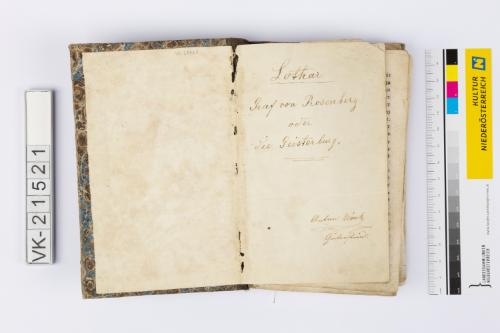 VK-21521
Lothar
Graf von Rosenberg
oder
die Geisterburg.
Anton
KULTUR
NIEDERÖSTERREICH
LANDESSAMMLUNGEN
NIEDERÖSTERREICH